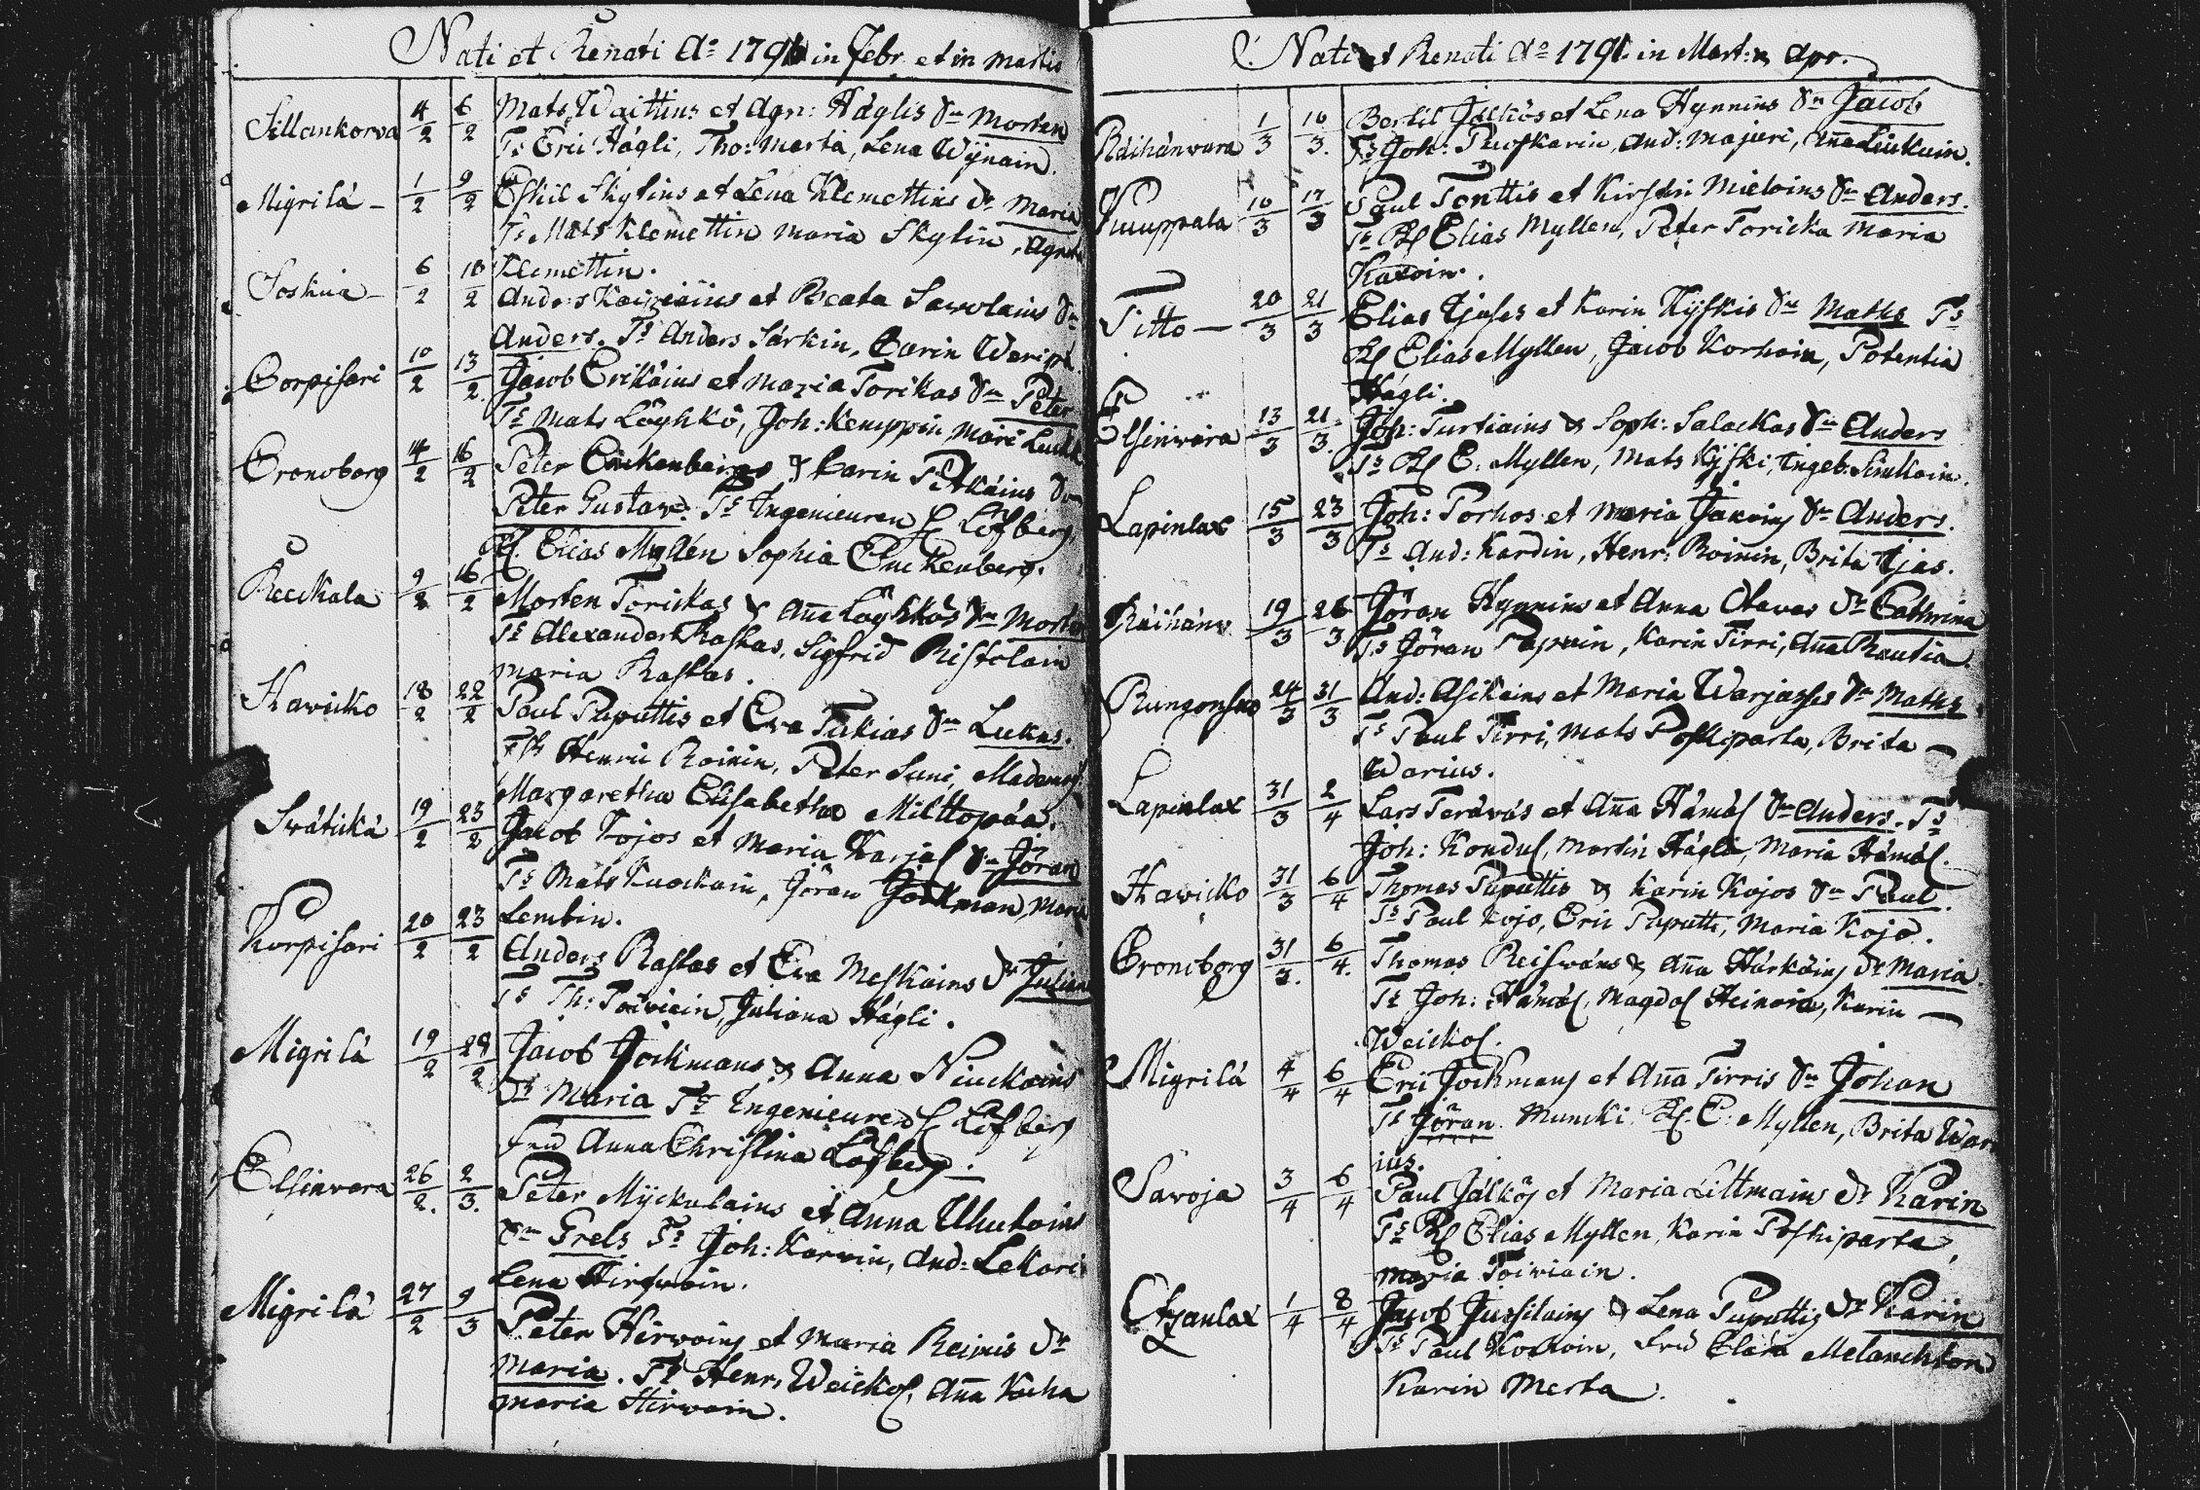 Nati et Renati Ao 1791 in Febr et in Martis
Sillankorva 4/2 6/2 Mats Waittins et Agn: Häglis Sn Morten
Ts Eric Hägli, Tho: Marta, Lena Wijnain.
Migrilä – 1/2 9/2 Eskil Skytins et Lena Klemettins Dr Maria
Ts Mats Klemettin Maria Skytin, Agneta
Klemettin.
Soskua – 6/2 10/2 Anders et Beata Sawolains Sn
Anders. Ts Anders Särkin, Carin
Corpisari 10/2 13/2 Jacob Erikäins et Maria Torikas Sn Peter
Ts Mats Löyhkö, Joh: Kemppin Mari
Cronoborg 14/2 16/2 Peter Enckenbergs & Carin Pitkäins Sn
Peter Gustav. Ts Ingenieuren C Löfberg
Elias Myllén Sophia Enckenberg.
Reeckala 9/2 16/2 Morten Torickas & Aña Löyhkös Sn Morten
Ts Alexander Raskas, Sigfrid Ristolain
Maria Raskas.
Hawicko 18/2 22/2 Paul Puputtis et Eva Tukias Sn Lukas.
Henric Roinin, Peter Suni, Madame
Margaretha Elisabetha Milttopää.
Swätickä 19/2 23/2 Jacob Kojos et Maria Karjal Sn Jöran
Ts Mats Kuockain, Jöran Jockman, Maria
Lembin.
Korpisari 20/2 23/2 Anders Raskas et Eva Meskains Dr Juliana
Ts Th: Toiviain, Juliana Hägli.
Migrilä 19/2 28/2 Jacob Jockmans & Anna Niuckains
Dr Maria Ts Ingenieuren C Löfberg
Fru Anna Christina Löfberg.
Elsinvara 26/2. 2/3. Peter Myckulains et Anna Uhukoins
Sn Grels Ts Joh: Karvin, And: Lekari
Lena Hirfwoin.
Migrilä 27/2 9/3 Peter Hirvoins et Maria Reinis Dr
Maria. Ts Henr, Weickol, Aña Kocha
Maria Hirwoin.
Nati et Renati Ao 1791. in Mart: & Apr.
Räihänvara 1/3 10/3. Bertil Jälkös et Lena Hynnins Sn Jacob
Ts Joh: Puoskarin, And: Majuri, Aña Liukuin.
Kuuppala 10/3 17/3 Paul Tenttis et Kirstin Mielvins Sn Anders.
Ts Elias Myllen, Peter Toricka Maria
Karvin.
Ditto – 20/3 21/3 Elias Tjases et Karin Kyskis Sn Maths Ts
Elias Myllen, Jacob Korhoin, Potentia
Hägli.
Elsinvara 13/3 21/3. Joh: Turtiains & Soph: Salackas Sn Anders
Ts E. Myllen, Mats Kyski, Ingeb: Sinkoin.
Lapinlax 15/3 23/3 Joh: Porhos et Maria Jakoins Sn Anders.
Ts And: Kardin, Henr: Roinin, Brita Tjäs.
Räihänv 19/3 26/3 Jöran Hynnins et Anna Olavas Dr Cathrina
Ts Jöran Paproin, Karin Tirri, Aña Rautia.
Rungonsuo 24/3 31/3 And: Asikains et Maria Warjasses Sn Maths
Ts Paul Tirri, Mats Poskiparta, Brita –
Warius.
Lapinlax 31/3 2/4 Lars Teräväs et Aña Hämäl Sn Anders. Ts
Joh: Kondul, Martin Hägla, Maria Hämäl.
Hawicko 31/3 6/4 Thomas Puputtis & Karin Kojos Sn Paul.
Ts Paul Kojo, Eric Puputti, Maria Kojo.
Cronoborg 31/3. 6/4. Thomas Reiswäns & Aña Härkäins Dr Maria.
Ts Joh: Hämäl, Magdal Heinoia, Karin –
Weickol.
Migrilä 4/4 6/4 Eric Jockmans et Aña Tirris Sn Johan
Ts Jöran Muncki, E: Myllen, Brita War
ius.
Savoja 3/4 6/4 Paul Jälkös et Maria Littmains Dr Karin
Ts Elias Myllen, Karin Poskiparta,
Maria Toiviain.
Otzanlax 1/4 8/4 Jacob Jussilains & Lena Puputtis Dr Karin
Ts Paul Koskoin, Fru Clära Melanchton
Karin Merta.